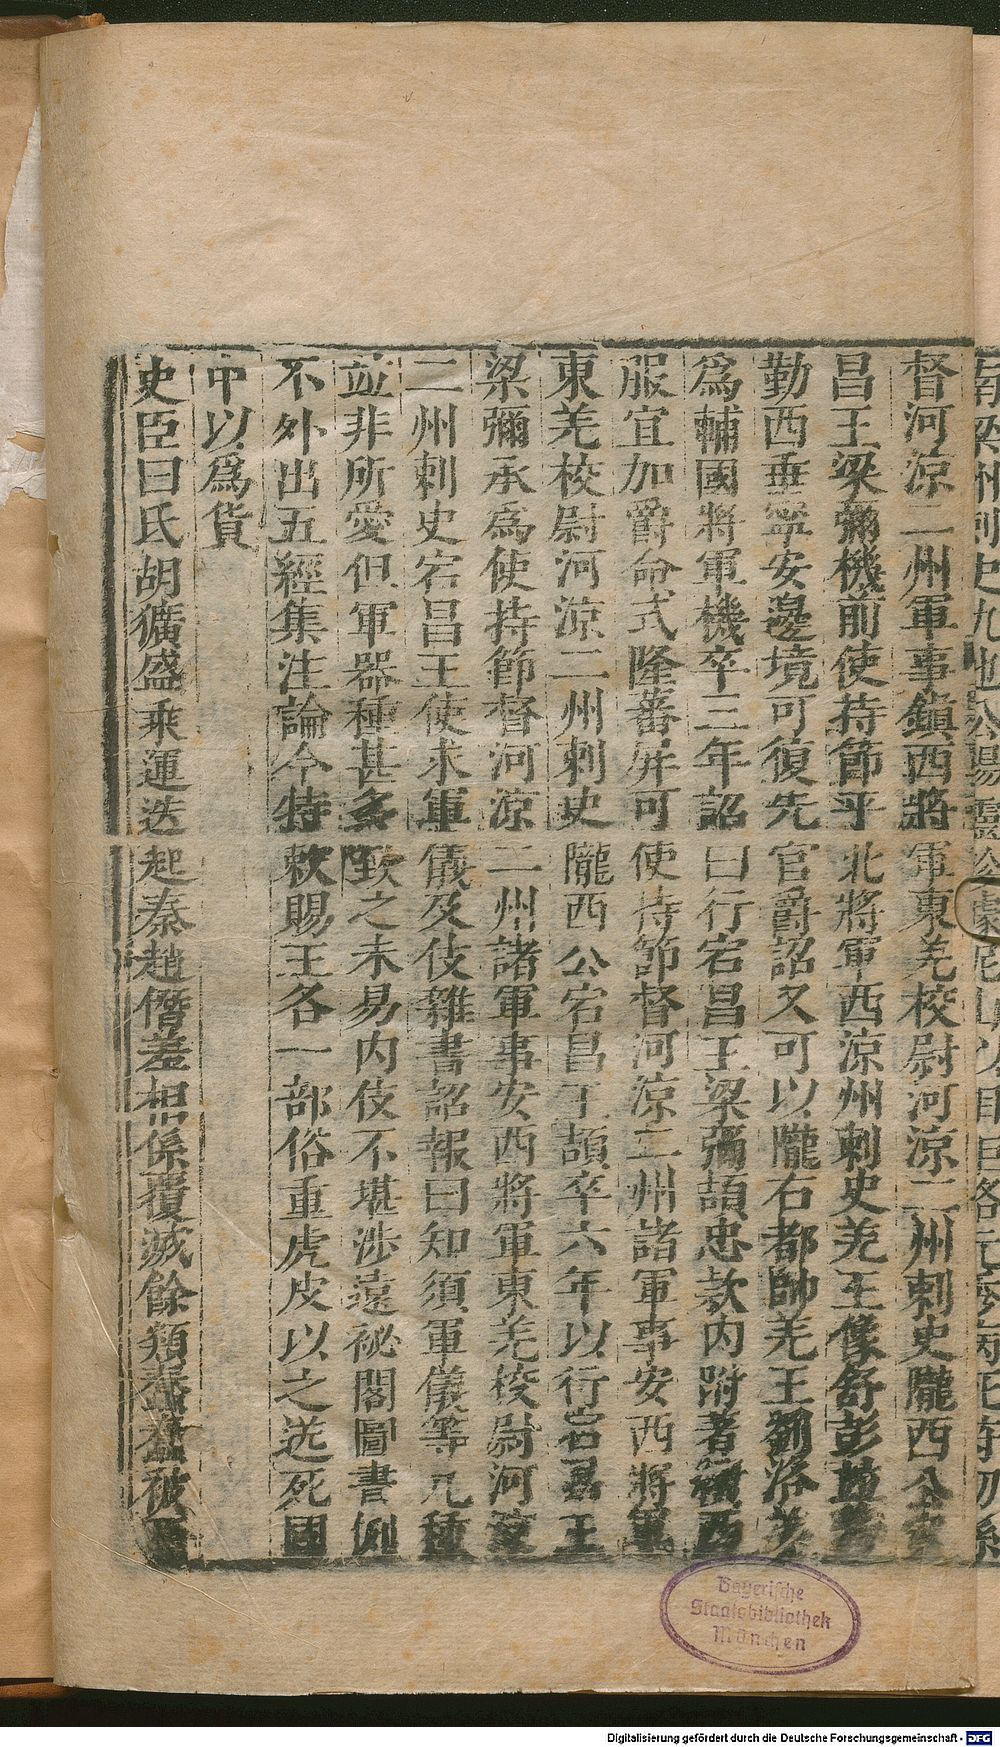 督河涼二州軍事鎮西將軍東羌校尉河涼二州刺史隴西公宕
昌王梁彌機前使持節平北將軍西涼州刺史羌王像舒彭並著
勤西垂寧安邊境可復先官爵詔又可以隴右都帥羌王劉洛羊
爲輔國將軍機卒三年詔曰行宕昌王梁彌頡忠款內附著績西
服宜加爵命式隆蕃屏可使持節督河涼二州諸軍事安西將軍
東羌校尉河涼二州刺史隴西公宕昌王頡卒六年以行宕昌王
梁彌承爲使持節督河涼二州諸軍事安西將軍東羌校尉河涼
二州刺史宕昌王使求軍儀及伎雜書詔報曰知須軍儀等九種
並非所愛但軍器種甚多致之未易內伎不堪涉遠祕閣圖書例
不外出五經集注論今特敕賜王各一部俗重虎皮以之送死國
中以爲貨
史臣曰氐胡獷盛乘運迭起秦趙僭差相係覆滅餘類蠢蠢被
Bayerische
Staatsbibliothek
München
Digitalisierung gefördert durch die Deutsche Forschungsgemeinschaft - DFG